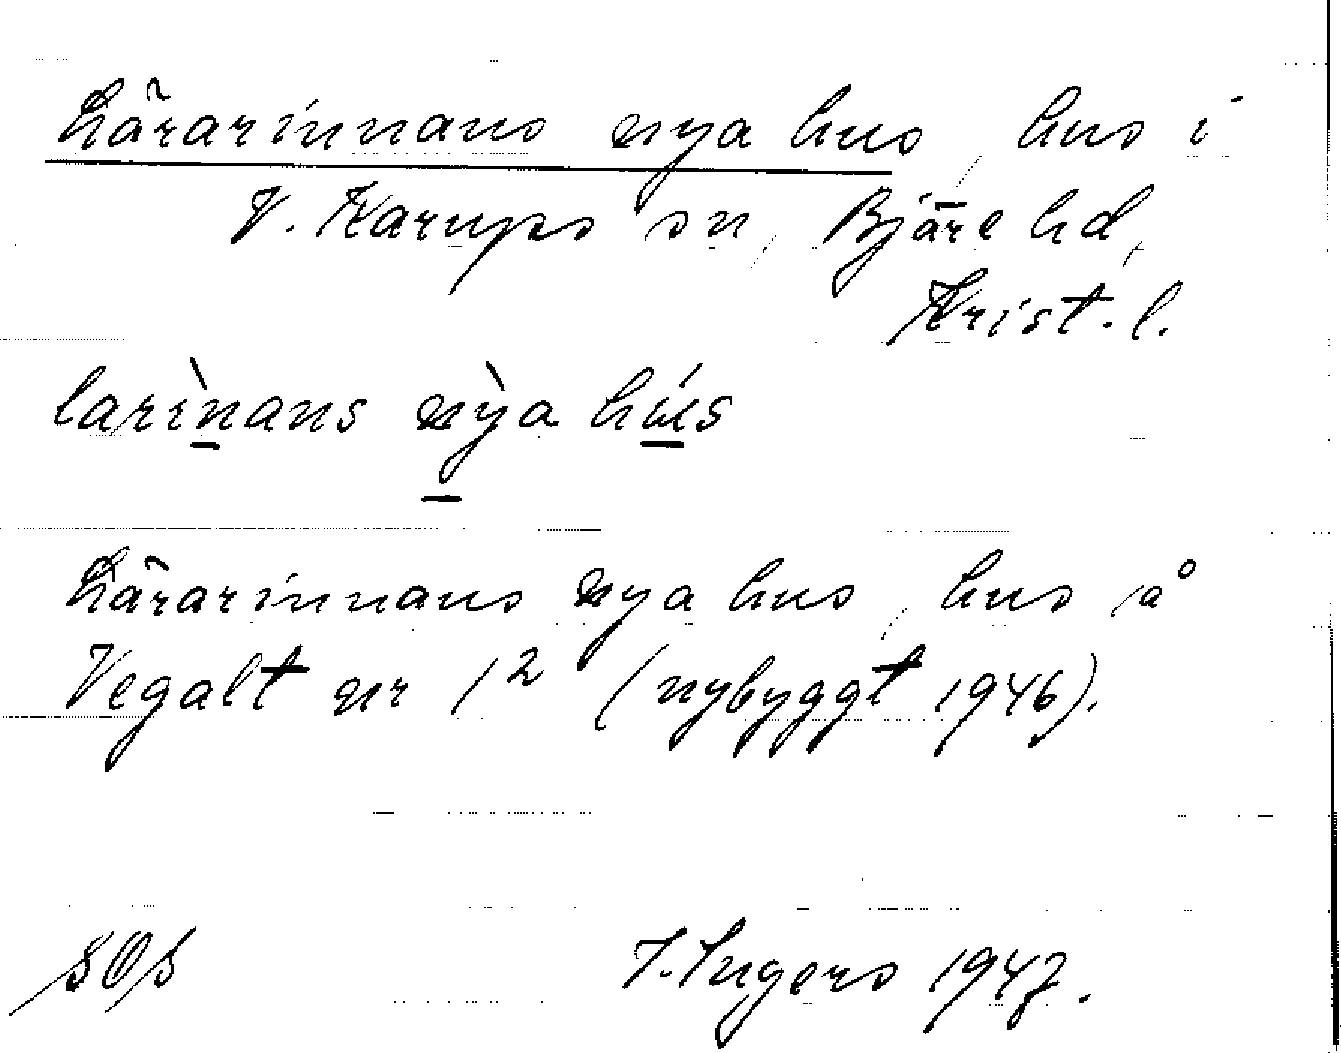 Lärarinnans nya hus, hus i
V. Karups sn, Bjäre hd,
Krist. l.
larìnans nỳa hús
Lärarinnans nya hus, hus å
Vegalt nr 1² (nybyggt 1946).
I. Ingers 1947.